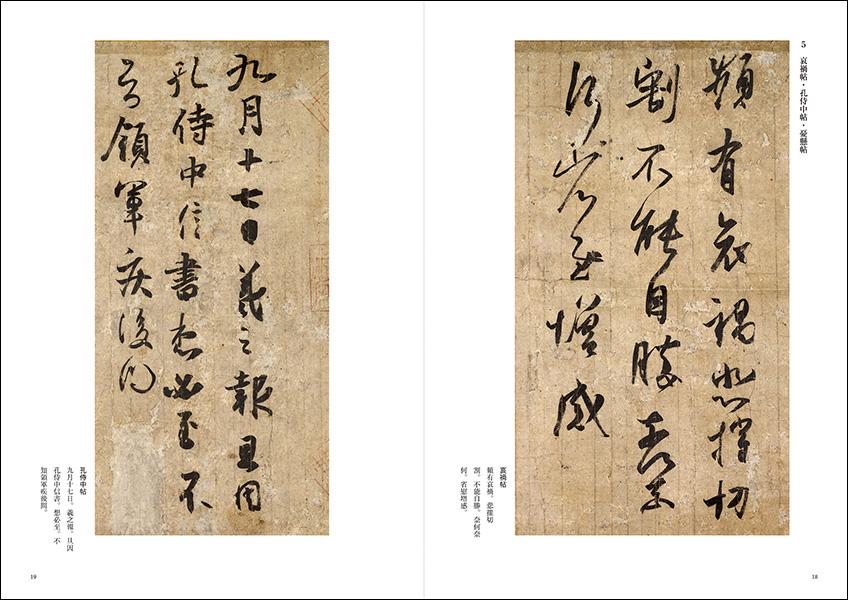 5 哀禍帖・孔侍中帖・憂懸帖
頻有哀禍悲摧切
割不能自勝奈何奈
何省慰増感
哀禍帖
頻有哀禍。悲摧切
割。不能自勝。奈何奈
何。省慰増感。
18
九月十七日羲之報且因
孔侍中信書想必至不
知領軍疾後問
孔侍中帖
九月十七日。羲之報。且因
孔侍中信書。想必至。不
知領軍疾後問。
19